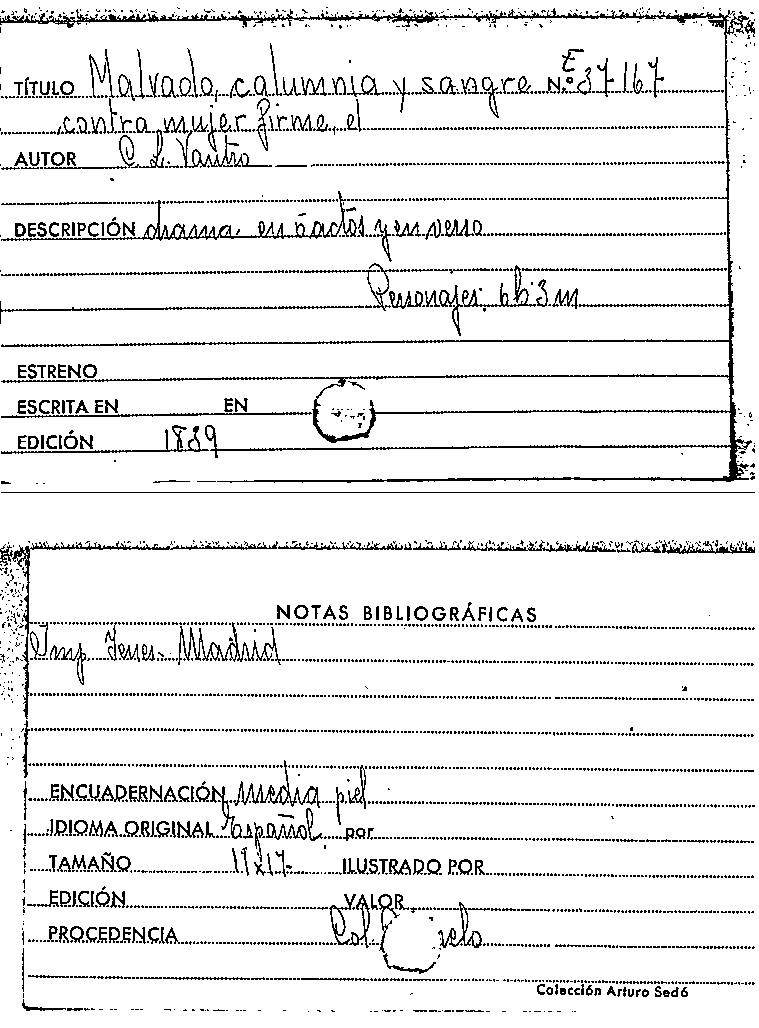 E
TÍTULO Malvado, calumnia y sangre N.º 37167
contra mujer firme, el
AUTOR C. L. Vautro
DESCRIPCIÓN drama en 5 actos y en verso
Personajes. 6h 3m
ESTRENO
ESCRITA EN EN
EDICIÓN 1839
NOTAS BIBLIOGRÁFICAS
Imp. Madrid
ENCUADERNACIÓN media piel
IDIOMA ORIGINAL Español por
TAMAÑO ILUSTRADO POR
EDICIÓN VALOR
PROCEDENCIA Col
Colección Arturo Sedó